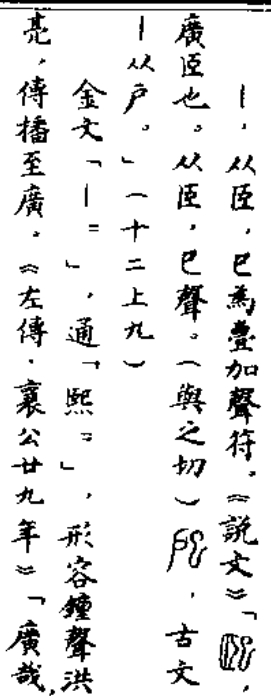 ｜，从臣，巳為疊加聲符。《說文》「，
廣臣也。从臣，巳聲。（與之切），古文
｜从户。」（十二上九）
金文「｜＝」，通「熙＝」，形容鐘聲洪
亮，傳播至廣。《左傳．襄公廿九年》「廣哉，